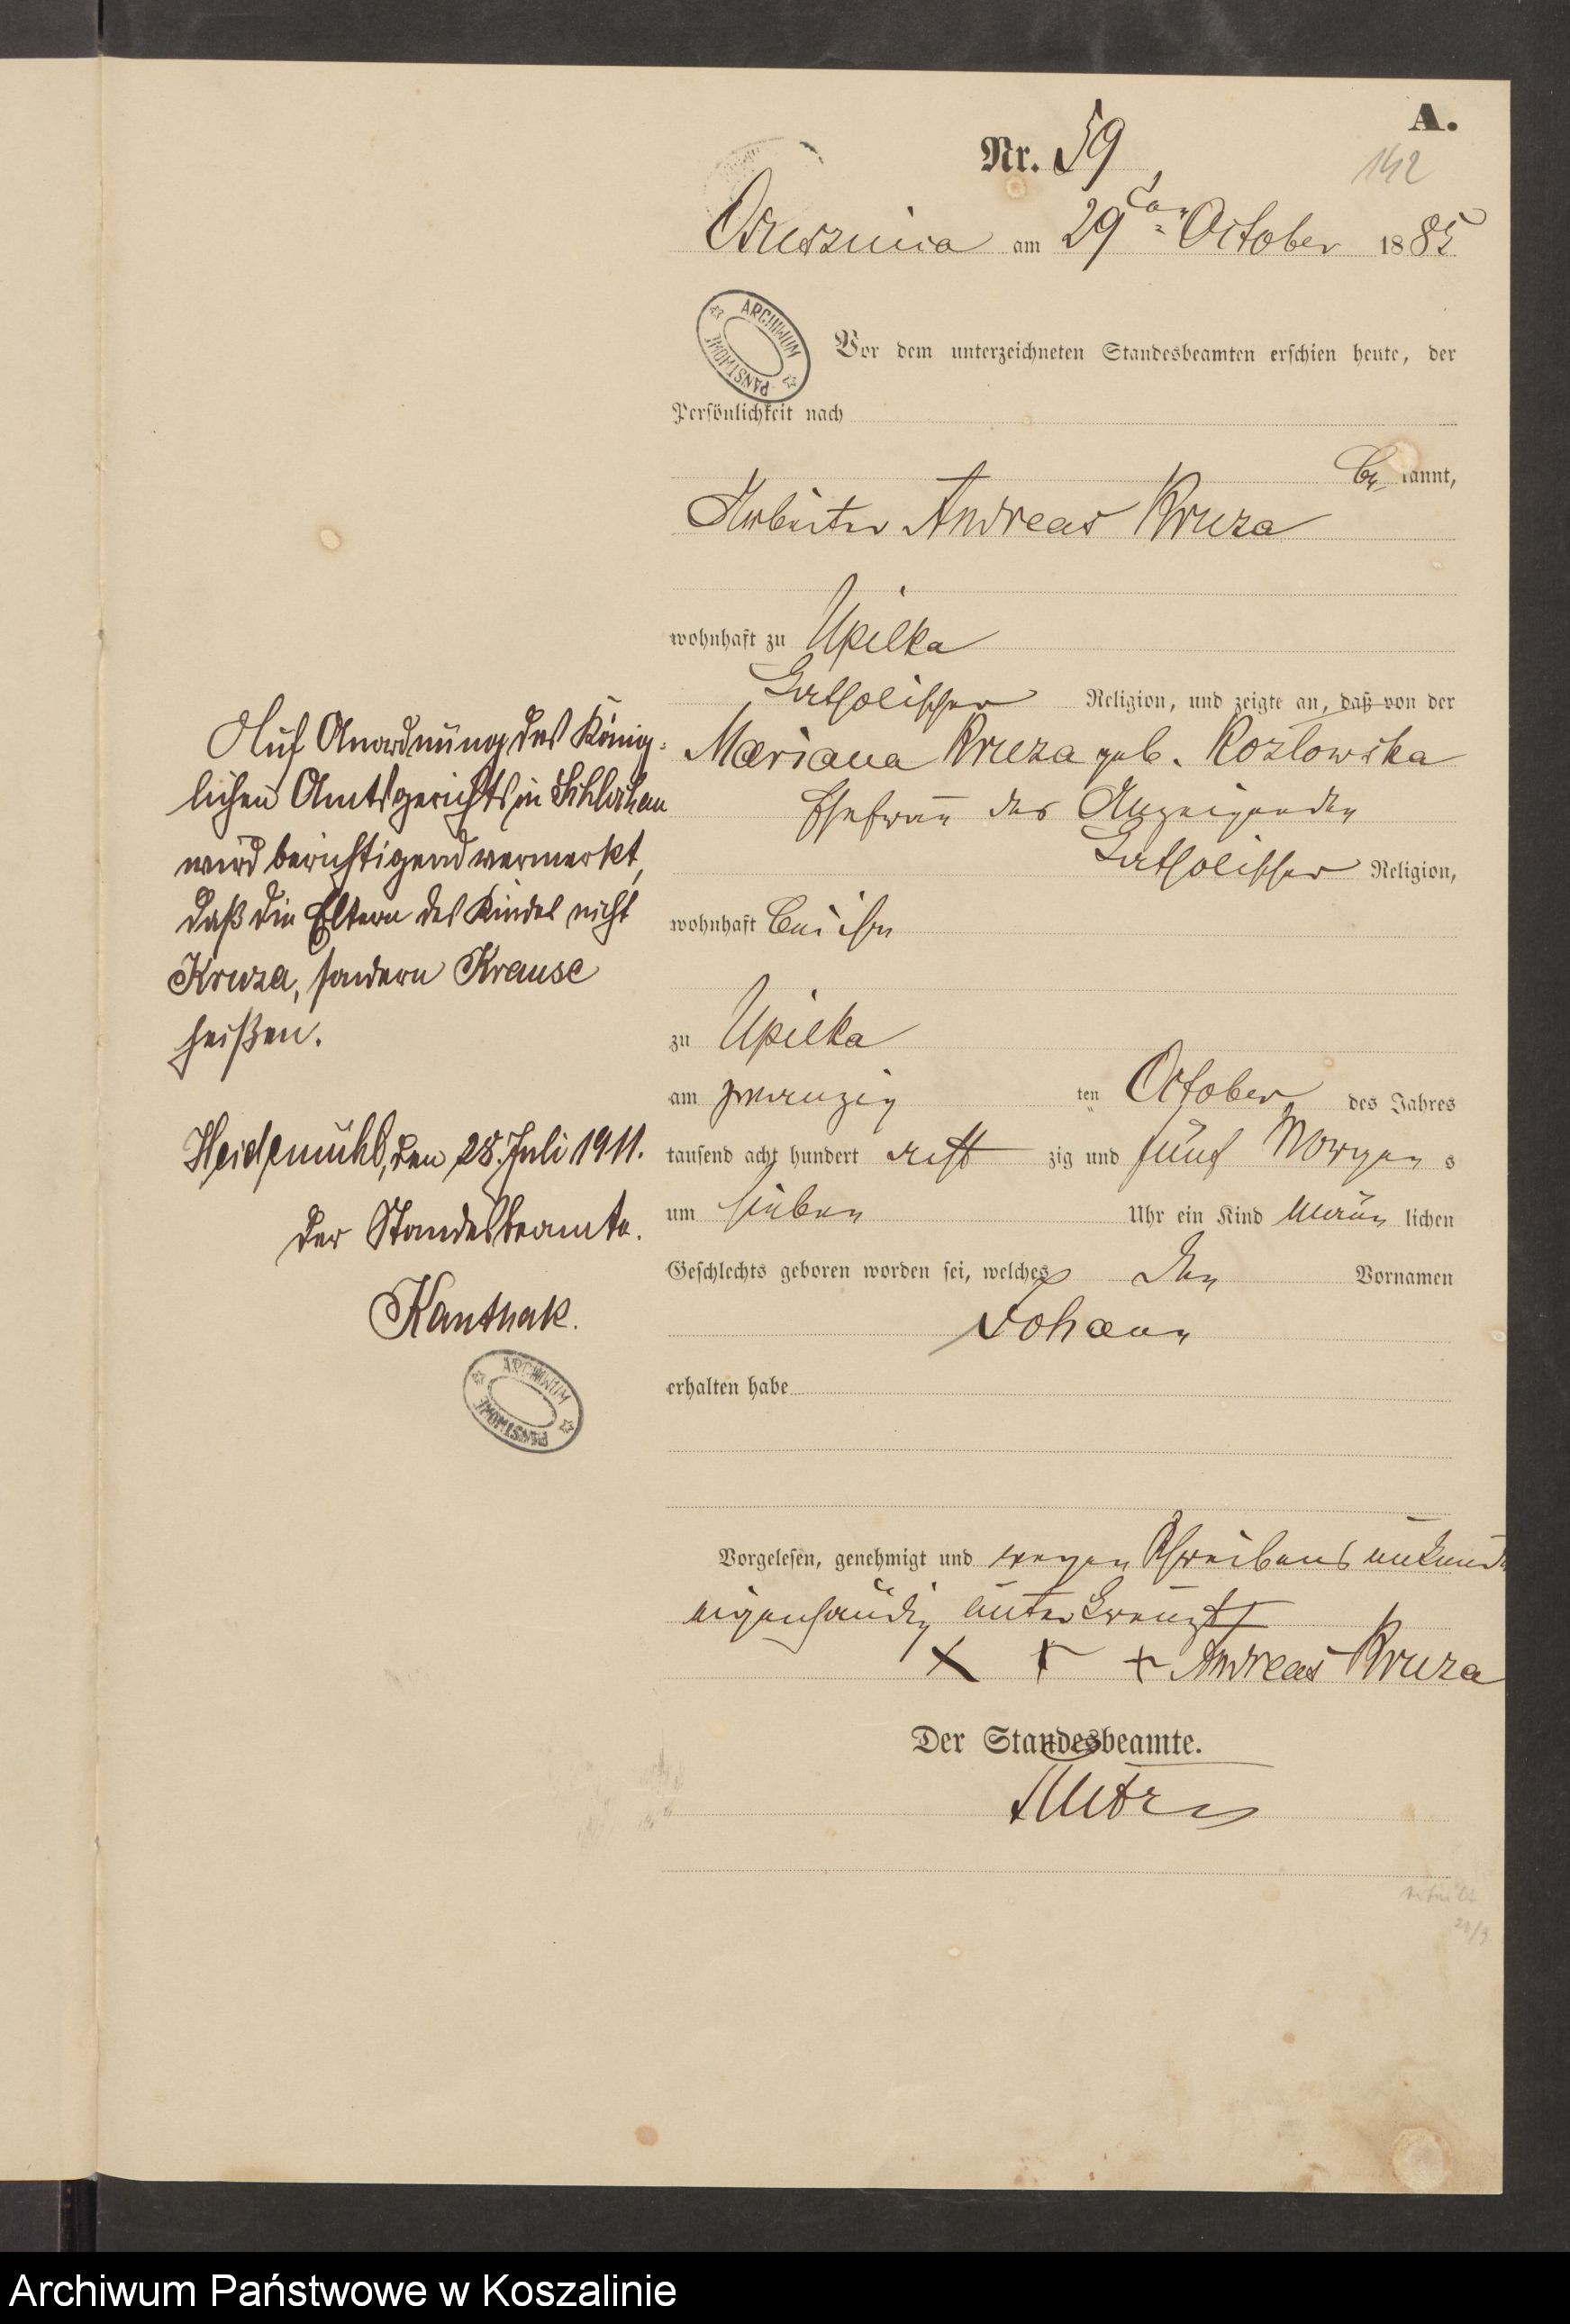 A.
Nr. 59
142
Osusznica am 29ten October 1885
ARCHIWUM PAŃSTWOWE
Vor dem unterzeichneten Standesbeamten erschien heute, der
Persönlichkeit nach
be kannt,
Arbeiter Andreas Kruza
wohnhaft zu Upilka
katholischer Religion, und zeigte an, daß von der
Mariana Kruza geb. Kozlowska
Ehefrau des Anzeigenden
katholischer Religion,
wohnhaft bei ihm
zu Upilka
am zwanzig ten October des Jahres
tausend acht hundert acht zig und fünf Morgen s
um sieben Uhr ein Kind männ lichen
Geschlechts geboren worden sei, welches den Vornamen
Johann
erhalten habe
Vorgelesen, genehmigt und wegen Schreibens unkunde
eigenhändig unterkreuzt
+ + + Andreas Kruza
Der Standesbeamte.
Auf Anordnung des König-
lichen Amtsgerichts in Schlochau
wird berichtigend vermerkt,
daß die Eltern des Kindes nicht
Kruza, sondern Krause
heißen.
Heidemühl, den 28. Juli 1911.
Der Standesbeamte.
Kanthak.
ARCHIWUM PAŃSTWOWE
Archiwum Państwowe w Koszalinie